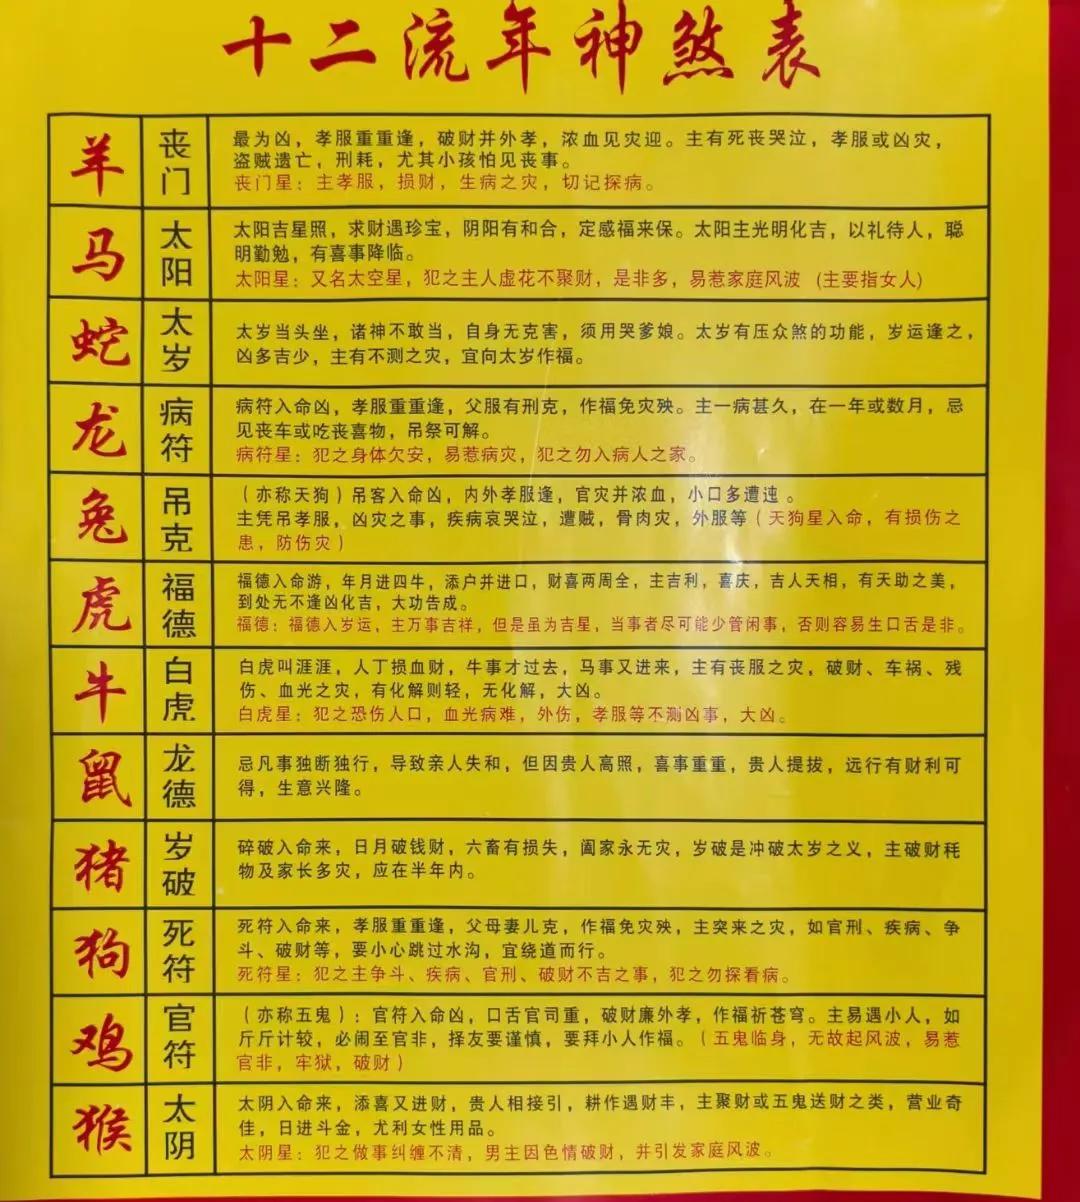 十二流年神煞表
羊
丧门
最为凶，孝服重重逢，破财并外孝，浓血见灾迎。主有死丧哭泣，孝服或凶灾，
盗贼遗亡，刑耗，尤其小孩怕见丧事。
丧门星：主孝服，损财，生病之灾，切记探病。
马
太阳
太阳吉星照，求财遇珍宝，阴阳有和合，定感福来保。太阳主光明化吉，以礼待人，聪
明勤勉，有喜事降临。
太阳星：又名太空星，犯之主人虚花不聚财，是非多，易惹家庭风波（主要指女人）
蛇
太岁
太岁当头坐，诸神不敢当，自身无克害，须用哭爹娘。太岁有压众煞的功能，岁运逢之，
凶多吉少，主有不测之灾，宜向太岁作福。
龙
病符
病符入命凶，孝服重重逢，父服有刑克，作福免灾殃。主一病甚久，在一年或数月，忌
见丧车或吃丧喜物，吊祭可解。
病符星：犯之身体欠安，易惹病灾，犯之勿入病人之家。
兔
吊克
（亦称天狗）吊客入命凶，内外孝服逢，官灾并浓血，小口多遭迍。
主凭吊孝服，凶灾之事，疾病哀哭泣，遭贼，骨肉灾，外服等（天狗星入命，有损伤之
患，防伤灾）
虎
福德
福德入命游，年月进四牛，添户并进口，财喜两周全，主吉利，喜庆，吉人天相，有天助之美，
到处无不逢凶化吉，大功告成。
福德：福德入岁运，主万事吉祥，但是虽为吉星，当事者尽可能少管闲事，否则容易生口舌是非。
牛
白虎
白虎叫涯涯，人丁损血财，牛事才过去，马事又进来，主有丧服之灾，破财、车祸、残
伤、血光之灾，有化解则轻，无化解，大凶。
白虎星：犯之恐伤人口，血光病难，外伤，孝服等不测凶事，大凶。
鼠
龙德
忌凡事独断独行，导致亲人失和，但因贵人高照，喜事重重，贵人提拔，远行有财利可
得，生意兴隆。
猪
岁破
碎破入命来，日月破钱财，六畜有损失，阖家永无灾，岁破是冲破太岁之义，主破财耗
物及家长多灾，应在半年内。
狗
死符
死符入命来，孝服重重逢，父母妻儿克，作福免灾殃，主突来之灾，如官刑、疾病、争
斗、破财等，要小心跳过水沟，宜绕道而行。
死符星：犯之主争斗、疾病、官刑、破财不吉之事，犯之勿探看病。
鸡
官符
（亦称五鬼）：官符入命凶，口舌官司重，破财廉外孝，作福祈苍穹。主易遇小人，如
斤斤计较，必闹至官非，择友要谨慎，要拜小人作福。（五鬼临身，无故起风波，易惹
官非，牢狱，破财）
猴
太阴
太阴入命来，添喜又进财，贵人相接引，耕作遇财丰，主聚财或五鬼送财之类，营业奇
佳，日进斗金，尤利女性用品。
太阴星：犯之做事纠缠不清，男主因色情破财，并引发家庭风波。